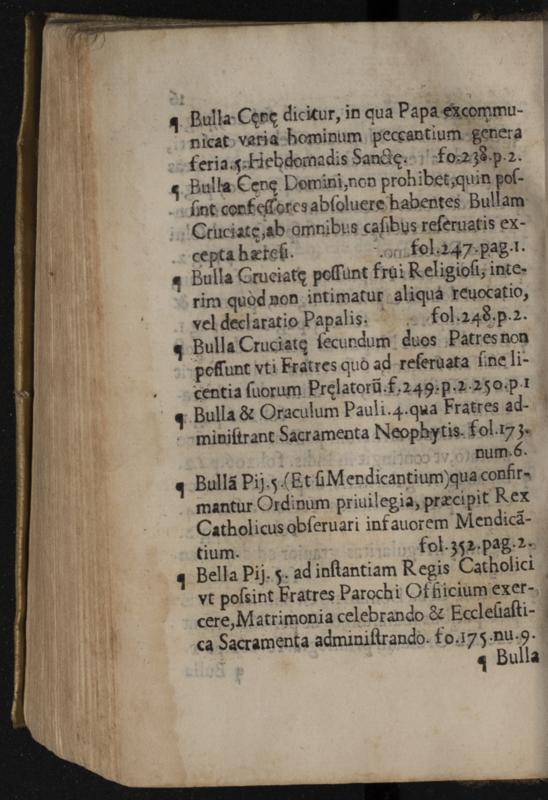 ¶ Bulla Cęnę dicitur, in qua Papa excommu-
nicat varia hominum peccantium genera
feria.5.Hebdomadis Sanctę. fo.238.p.2.
¶ Bulla Cęnę Domini, non prohibet, quin pos-
sint confessores absoluere habentes Bullam
Cruciatę, ab omnibus casibus reseruatis ex-
cepta hæresi. fol.247.pag.1.
¶ Bulla Cruciatę possunt frui Religiosi, inte-
rim quòd non intimatur aliqua reuocatio,
vel declaratio Papalis. fol.248.p.2.
¶ Bulla Cruciatę secundum duos Patres non
possunt vti Fratres quò ad reseruata sine li-
centia suorum Pręlatorũ.f.249.p.2.250.p.1
¶ Bulla & Oraculum Pauli.4.qua Fratres ad-
ministrant Sacramenta Neophytis. fol.173.
num.6.
¶ Bullã Pij.5.(Et si Mendicantium)qua confir-
mantur Ordinum priuilegia, præcipit Rex
Catholicus obseruari in fauorem Mendicã-
tium. fol.352.pag.2.
¶ Bella Pij. 5. ad instantiam Regis Catholici
vt possint Fratres Parochi Officium exer-
cere, Matrimonia celebrando & Ecclesiasti-
ca Sacramenta administrando. fo.175.nu.9.
¶ Bulla